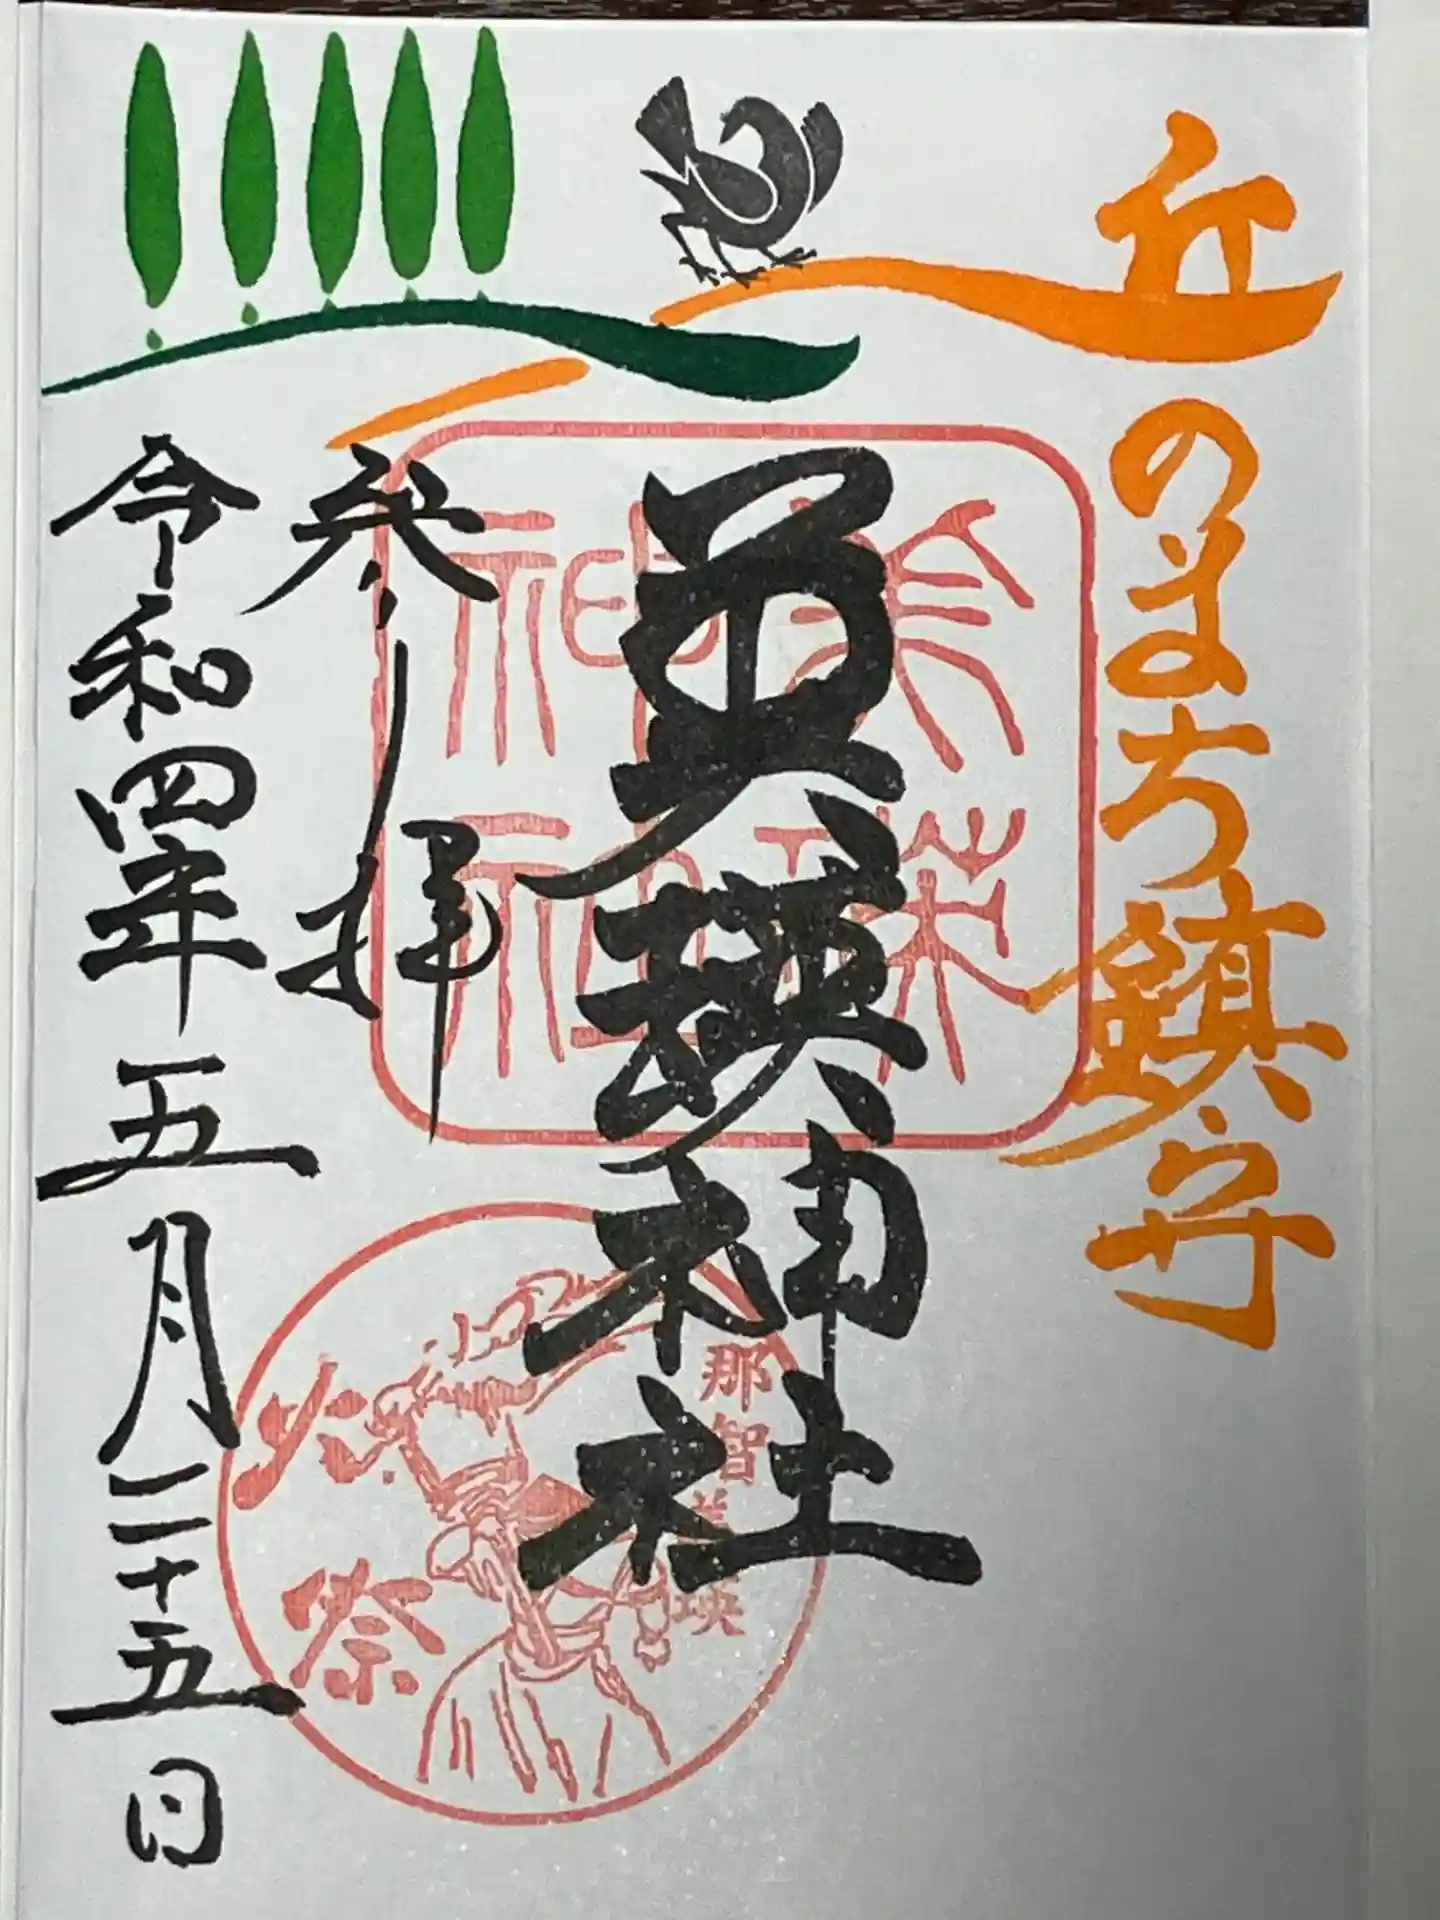 丘のまち鎮守
美瑛神社
美瑛
神社
那智美瑛
火祭
参拝
令和四年五月二十五日